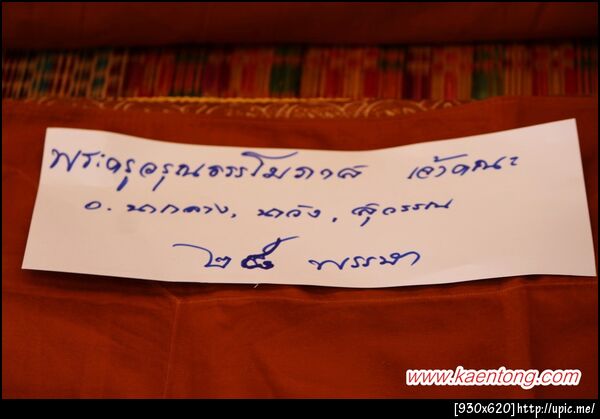 พระครูอรุณธรรโมภาส เจ้าคณะ
อ. นากลาง, นาวัง, สุวรรณ
๒๕ พรรษา
www.kaentong.com
[930x620]http://upic.me/